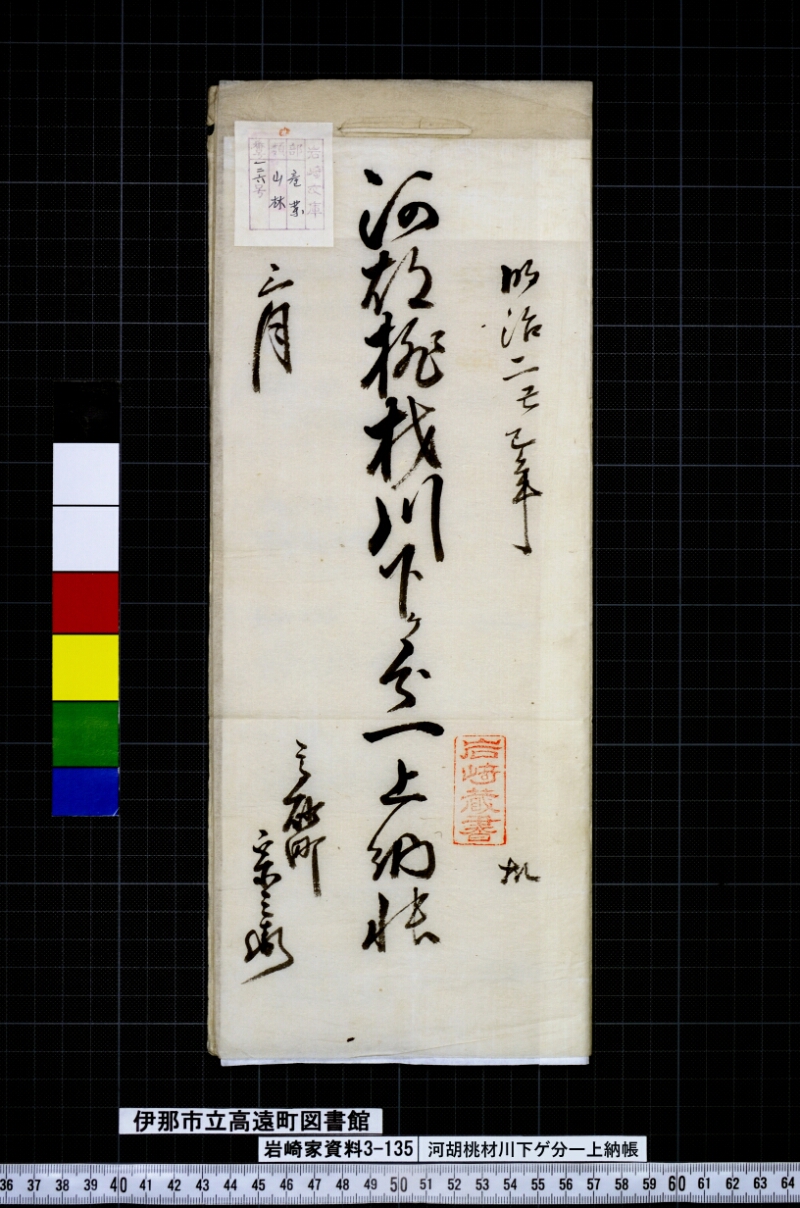 岩崎文庫
部 産業
類 山林
明治二己巳年
河胡桃材川下ケ分一上納帳
三月
岩崎蔵書
扣
伊那市立高遠町図書館
岩崎家資料3-135
河胡桃材川下ゲ分一上納帳
36 37 38 39 40 41 42 43 44 45 46 47 48 49 50 51 52 53 54 55 56 57 58 59 60 61 62 63 64